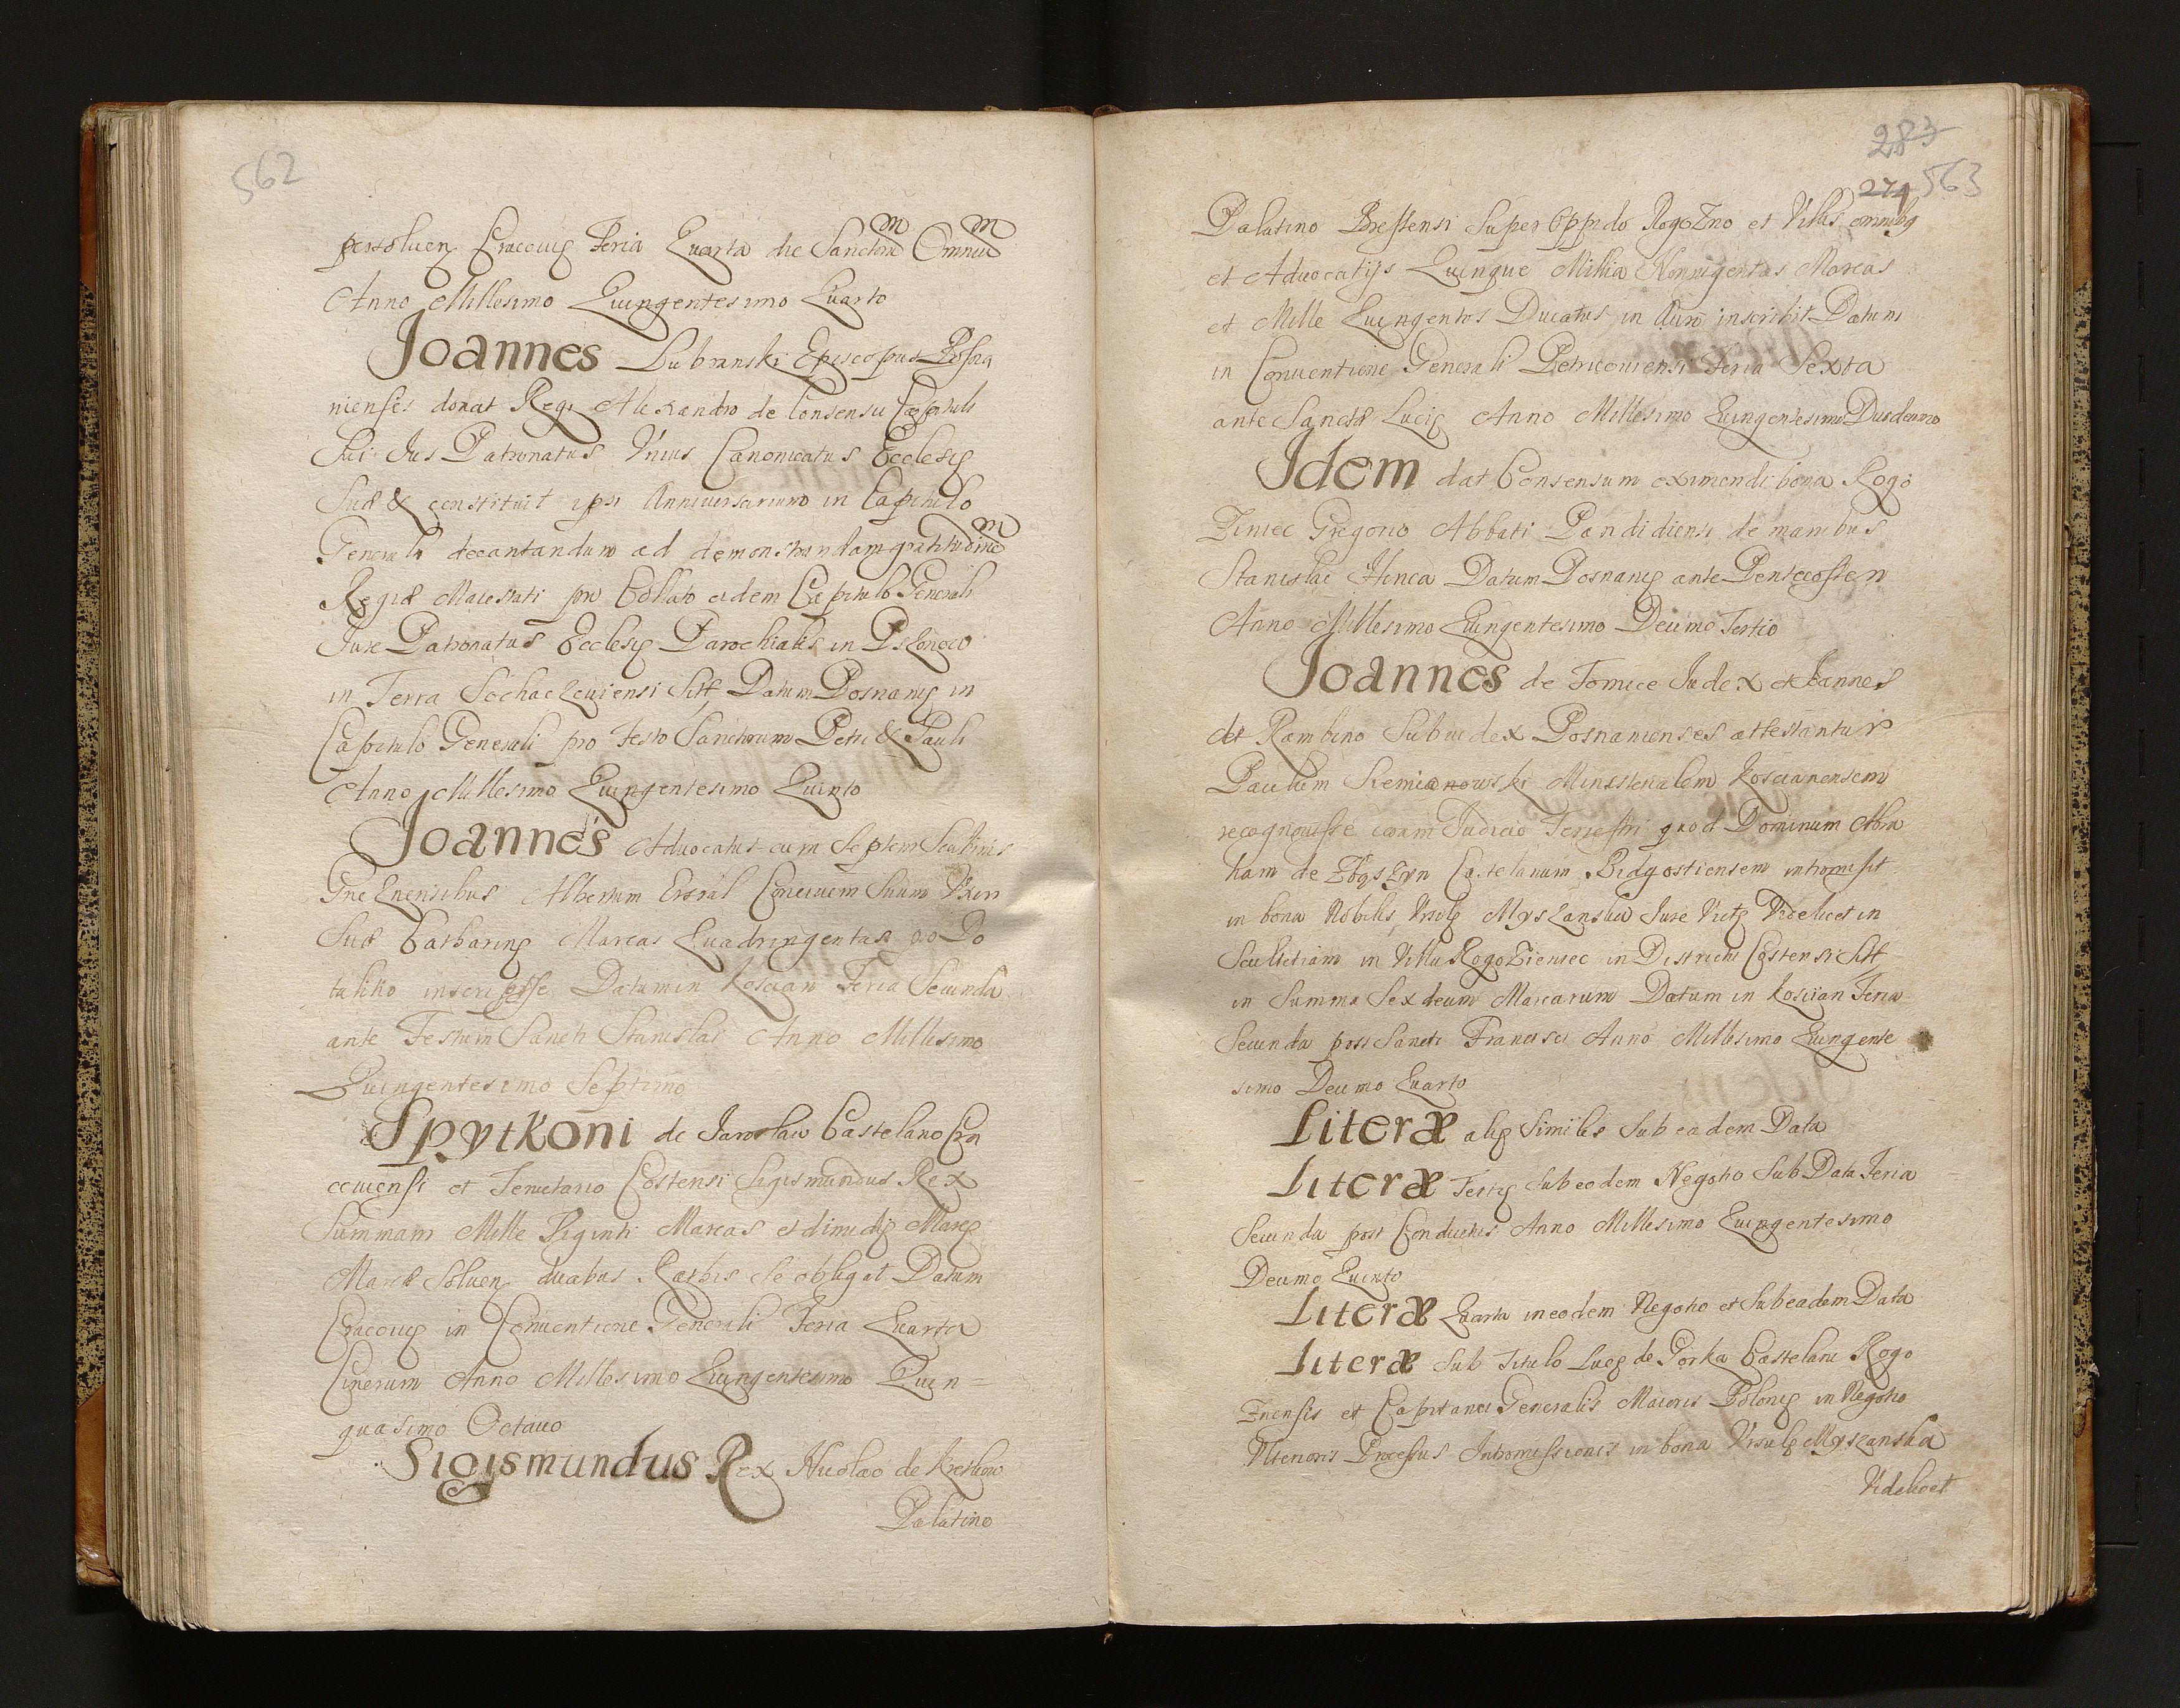 562
persoluen Cracouię Feria Quarta die Sanctoru Omniu
Anno Millesimo Quingentesimo Quarto
Joannes Lubranski Episcopus Posna
niensis donat Regi Alexandro de Consensu Capituli
Sui Jus Patronatus Vnius Canonicatus Ecclesię
Suæ & constituit ipsi Anniuersarium in Capitulo
Generali decantandum ad demonstrandam gratitudine
Regiæ Maiestati pro Collato eidem Capitulo Generali
Jure Patronatus Ecclesię Parochialis in Pszonowo
in Terra Sochaczeuiensi Sitt Datum Posnanię in
Capitulo Generali pro Festo Sanctorum Petri & Pauli
Anno Millesimo Quingentesimo Quinto
Joannes Aduocatus cum Septem Scabinis
Gneznensibus Albertum Conciuem Suum Vxori
Suæ Catharinę Marcas Quadringentas pro Do
talitio inscripsisse Datum in Koscian Feria Secunda
ante Festum Sancti Stanislai Anno Millesimo
Quingentesimo Septimo
Spytkoni de Jaroslaw Castelano Cra
couiensi et Tenutario Costensi Sigismundus Rex
Summam Mille Viginti Marcas et dimidię Marcę
Marcæ Soluen duabus Rathis Se obligat Datum
Cracouię in Conuentione Generali Feria Quarta
Cinerum Anno Millesimo Quingentesimo Quin=
quasimo Octauo
Sigismundus Rex Nicolao de Kretkow
Palatino
283
274 563
Palatino Brestensi Super Oppido Rogozno et Villis omnibq
et Aduocatijs Quinque Millia Nonnigentas Marcas
et Mille Quingentos Ducatus in Auro inscribit Datum
in Conuentione Generali Petricouiensi Feria Sexta
ante Sanctæ Lucię Anno Millesimo Quingentesimo Duodecimo
Idem dat Consensum eximendi bona Rogo
Ziniec Gregorio Abbati Pandidiensi de manibus
Stanislai Hinca Datum Posnanię ante Pentecosten
Anno Millesimo Quingentesimo Decimo Tertio
Joannes de Tomice Judex et Joannes
de Rambino Subiudex Posnanienses attestantur
Paulum Sremianowski Ministerialem Koscianensem
recognouisse coram Judicio Terrestri quod Dominum Abra
ham de Zbąszyn Castelanum Bidgostiensem intromisit
in bona Nobilis Vrsulę Myszanska Jure Victę Videlicet in
Scultetiam in Villa Rogoziniec in Districtu Costensi Sitt
in Summa Sexdecim Marcarum Datum in Koscian Feria
Secunda post Sancti Francisci Anno Millesimo Quingente
simo Decimo Quarto
Literæ alię Similes Sub eadem Data
Literæ Tertię Sub eodem Negotio Sub Data Feria
Secunda post Conductus Anno Millesimo Quingentesimo
Decimo Quinto
Literæ Quarta in eodem Negotio et Sub eadem Data
Literæ Sub Titulo Lucę de Gorka Castelani Rogo
znensis et Capitanei Generalis Maioris Polonię in Negotio
Vlterioris Processus Intromissionis in bona Vrsulę Myszanska
Videlicet